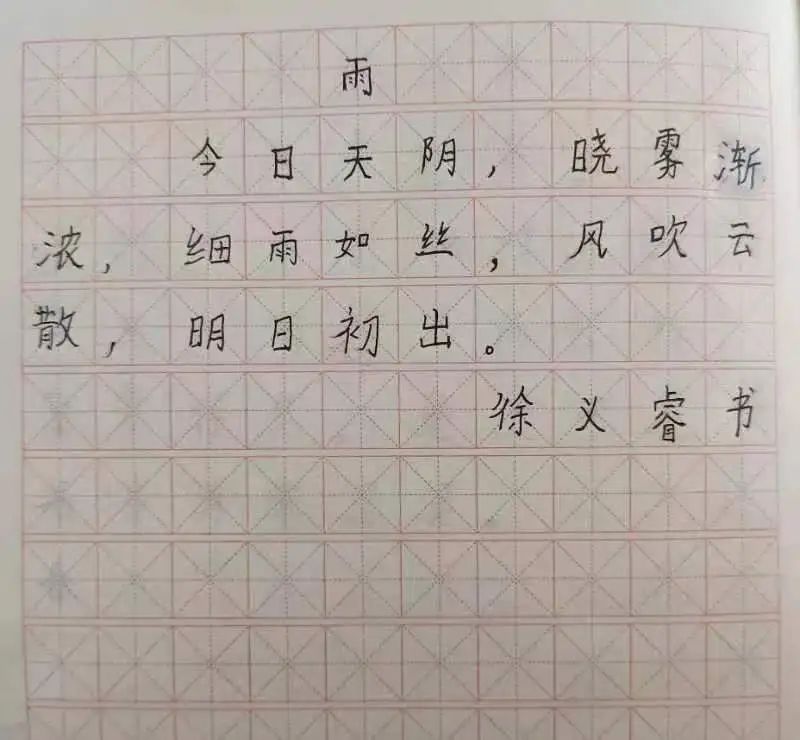 雨
今日天阴，晓雾渐
浓，细雨如丝，风吹云
散，明日初出。
徐义睿书